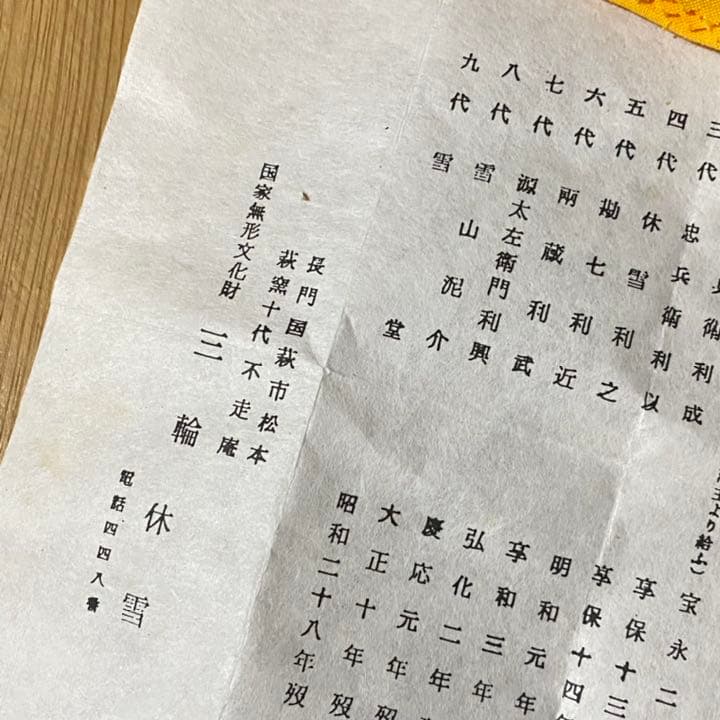 宝永二
兵衛利成
より給ふ
享保十三
三代 忠兵衛利以 享保十四年
四代 休雪利之 明和元年
五代 勘七利近 享和三年
六代 兩蔵利武 弘化二年
七代 源太左衛門利興 慶応元年
八代 雪山 泥介 大正十年歿
九代 雪堂 昭和二十八年歿
長門国萩市松本
萩窯十代不走庵
国家無形文化財
三輪休雪
電話四四八番